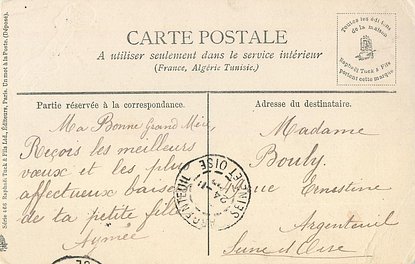 CARTE POSTALE
A utiliser seulement dans le service intérieur
(France, Algérie Tunisie.)
Toutes les éditions
de la maison
Raphaël Tuck & Fils
portent cette marque
Partie réservée à la correspondance.
Ma Bonne Grand Mère,
Reçois les meilleurs
vœux et les plus
affectueux baisers
de ta petite fille
Aymée
Adresse du destinataire.
Madame
Bouly
rue Ernestine
Argenteuil
Seine et Oise
ARGENTEUIL
SEINE ET OISE
Série 466 Raphaël Tuck & Fils Ltd., Éditeurs, Paris. Un mot à la Poste, (Déposé).